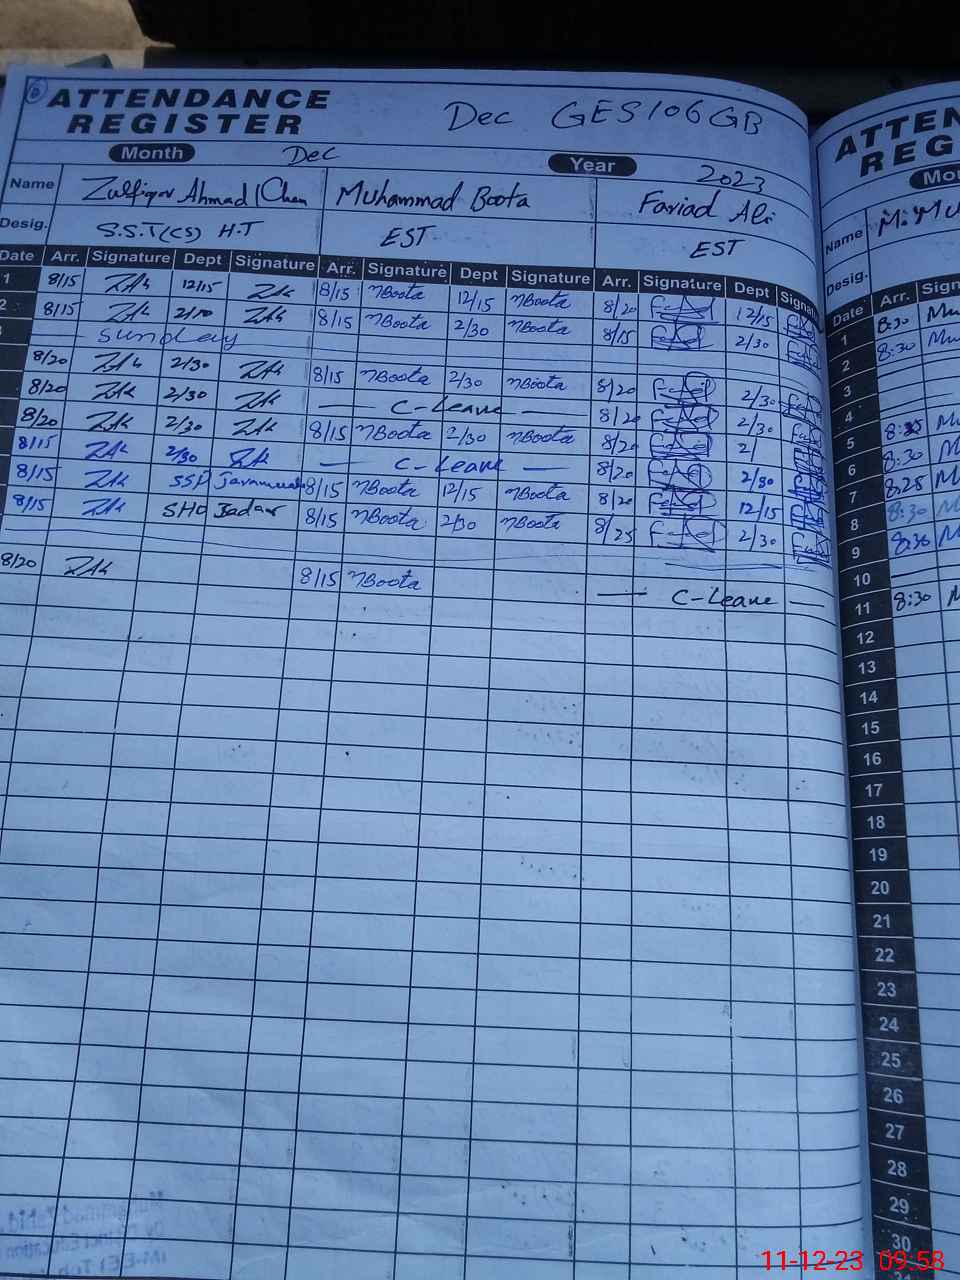 ATTENDANCE REGISTER Dec GES 106 GB
Month Dec Year 2023
Name Zulfiqar Ahmad Muhammad Boota Fariad Ali
Desig. S.S.T(CS) H.T EST EST
Date Arr. Signature Dept Signature Arr. Signature Dept Signature Arr. Signature Dept Signature
1 8/15 ZAk 12/15 ZAk 8/15 MBoota 12/15 MBoota 8/20 12/15
2 8/15 ZAk 2/30 ZAk 8/15 MBoota 2/30 MBoota 8/15 2/30
Sunday
8/20 ZAk 2/30 ZAk 8/15 MBoota 2/30 MBoota 8/20 2/30
8/20 ZAk 2/30 ZAk C-Leave 8/20 2/30
8/20 ZAk 2/30 ZAk 8/15 MBoota 2/30 MBoota 8/20 2/
8/15 ZAk 2/30 ZAk C-Leave 8/20 2/30
8/15 ZAk SSP 8/15 MBoota 12/15 MBoota 8/20 12/15
8/15 ZAk SHO 8/15 MBoota 2/30 MBoota 8/25 2/30
8/20 ZAk 8/15 MBoota C-Leave
ATTEN
REG
Mo
Name M.Mu
Desig.
Date Arr. Sign
1 8:30 Mu
2 8:30 Mu
3
4
5 8:25 M
6 8:30 M
7 8:25 M
8 8:30 M
9 8:30 M
10
11 8:30 M
12
13
14
15
16
17
18
19
20
21
22
23
24
25
26
27
28
29
30
11-12-23 09:58